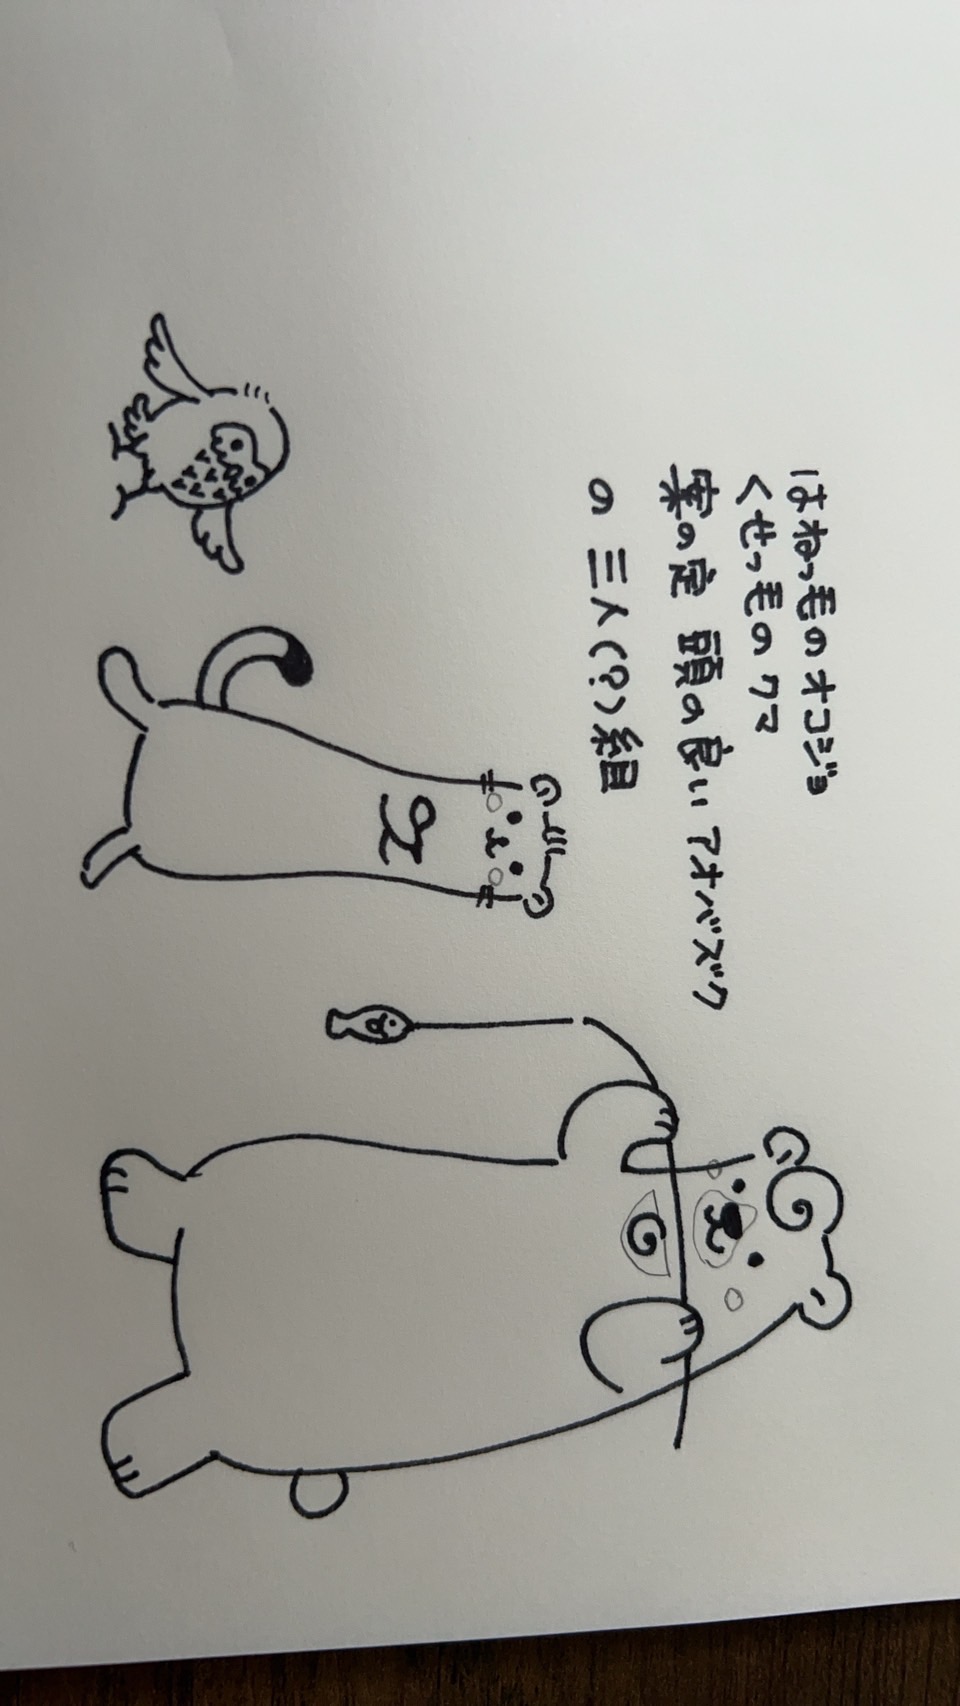 はねっ毛のオコジョ
くせっ毛のクマ
案の定 頭の良い アオバズク
の 三人(?)組